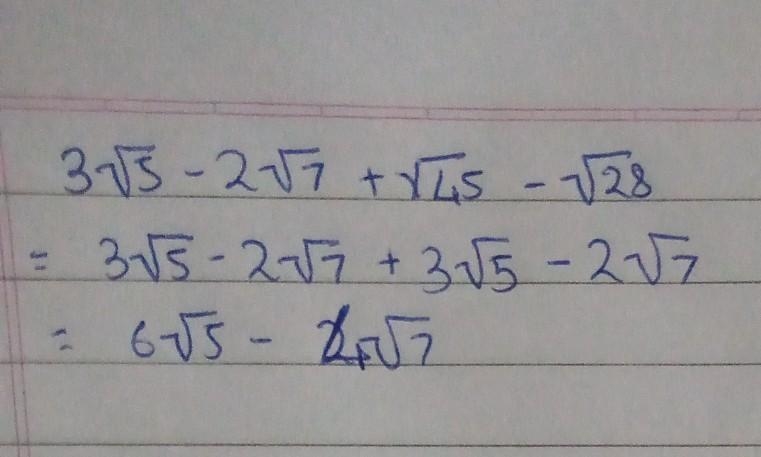 3√5 - 2√7 + √45 - √28
= 3√5 - 2√7 + 3√5 - 2√7
= 6√5 - 4√7